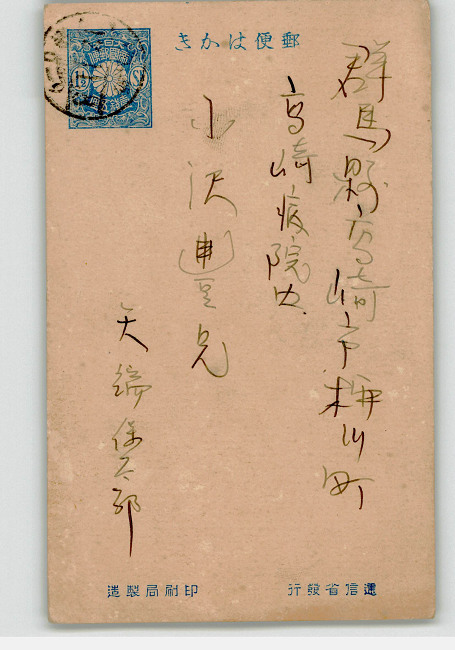 郵便はかき
群馬縣高崎市柳川町
高崎病院内
沢 兄
矢端保太郎
遞信省發行
印刷局製造